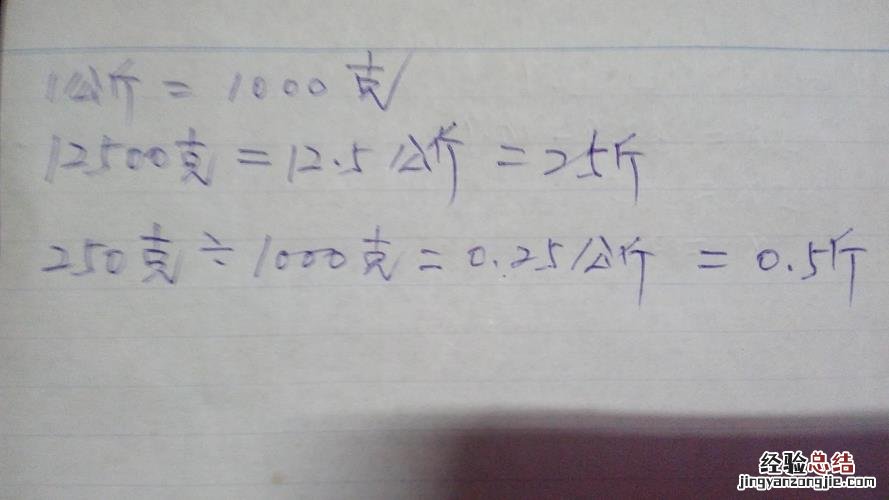 1公斤=1000克
12500克=12.5公斤=25斤
250克÷1000克=0.25公斤=0.5斤
经验总结
jingyanzongjie.com